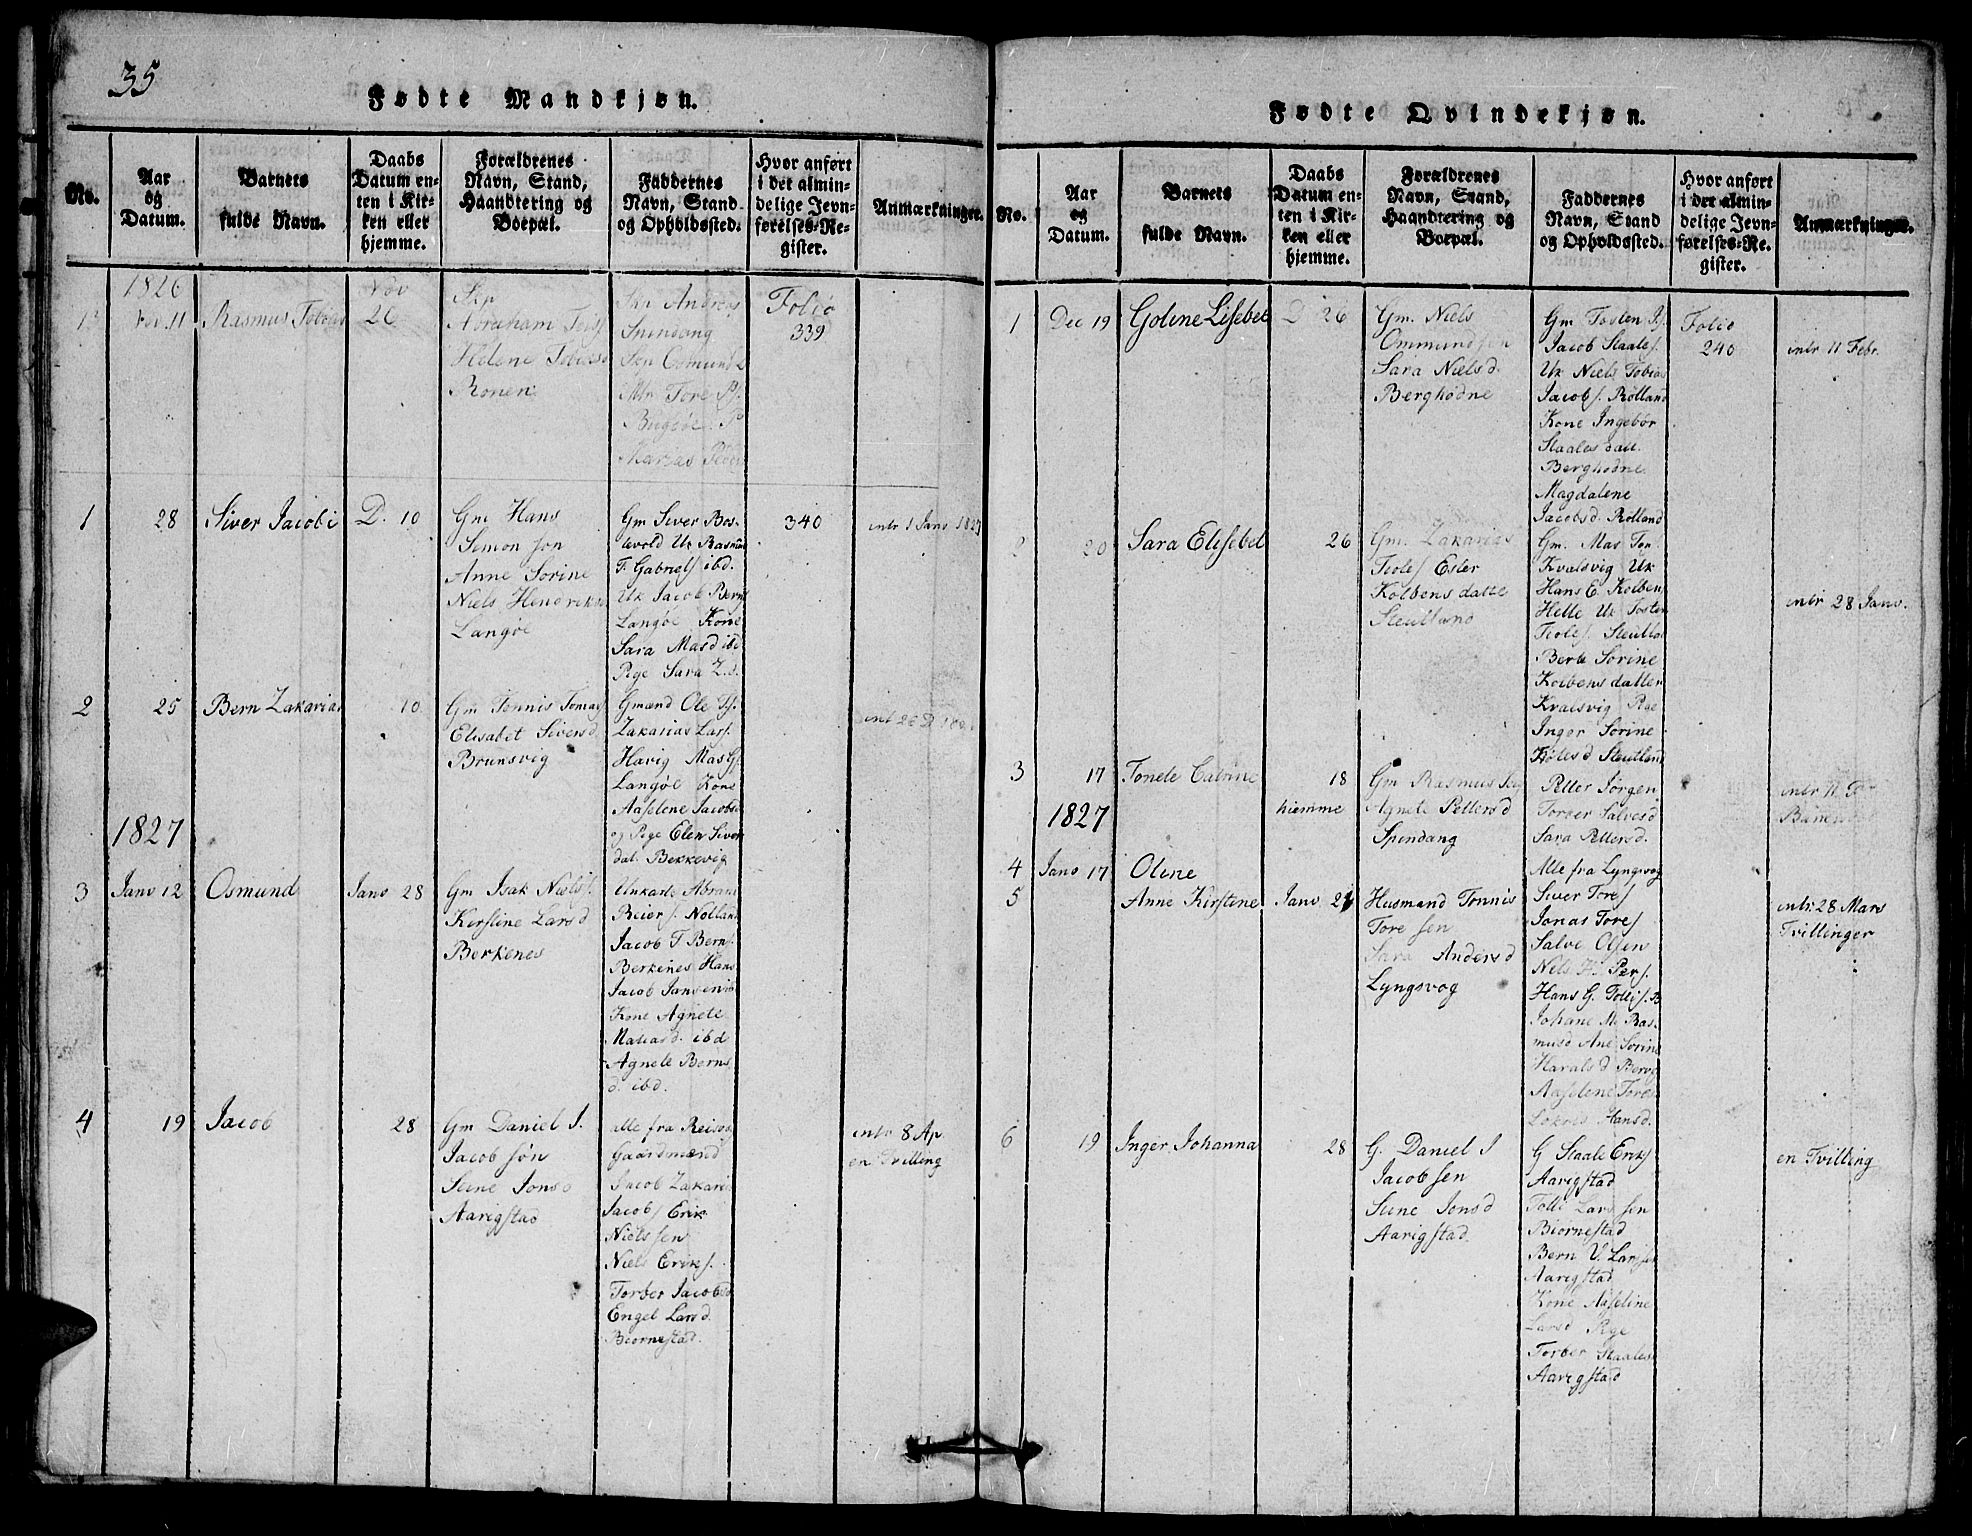 35
Fødte Mandkjøn.
No.
Aar og Datum.
Barnets fulde Navn.
Daabs Datum enten i Kirken eller hjemme.
Forældrenes Navn, Stand, Haandtering og Boepæl.
Faddernes Navn, Stand og Opholdssted.
Hvor anført i det almindelige Jevnførelses-Register.
Anmærkninger.
1826
Nov. 11
Rasmus Tobias
Nov
26
Abraham
Helene Tobiesd
Ronen
Andreas
Spindang
Osmund
Tore
Folio
339
1
28
Siver Jacobi
D. 10
Gm Hans
Simon son
Anne Sorine
Niels Hendriks
Langøe
Gm Siver Bos-
tevold Uk Rasmus
T. Gabriels ibd.
Uk Jacob Bernf
Langøe Kone
Sara Masd ibd
Pge Sara Z.d.
340
intr 1 Janv 1827
2
25
Bern Zakarias
10
Gm Tønnis Tomas
Elisabet Siversd
Brunsvig
Gmænd Ole Tf.
Zakarias Larf.
Havig Mas Gf.
Langøe Kone
Aaselene Jacobsd
og Pge Elen Siver
dat. Bekkevig
1827
3
Janv 12
Osmund
Janv 28
Gm Isak Nielsf.
Kerstine Larsd
Berkenes
Unkarle Abram
Reierf. Nolland
Jacob T Bernf.
Berkenes Hans
Jacob Jansen
Kone Agnete
ibd
Agnete Berns
d. ibd.
4
19
Jacob
28
Gm Daniel J.
Jacob søn
Sene Jonsd
Aarigstad
alle fra
Gaardmænd
Jacob Zakari
Jacobf Erik
Niels sen
Niels Erikf.
Torber Jacobsd
Engel Larsd.
Biornestad.
intr 8 Ap
en Tvilling
Fødte Qvindekjøn.
No.
Aar og Datum.
Barnets fulde Navn.
Daabs Datum enten i Kirken eller hjemme.
Forældrenes Navn, Stand, Haandtering og Boepæl.
Faddernes Navn, Stand og Opholdssted.
Hvor anført i det almindelige Jevnførelses-Register.
Anmærkninger.
1
Dec 19
Golene Lisebet
D 26
Gm. Niels
Ommundsen
Sara Nielsd.
Berghodne
Gm Tosten
Jacob Staalef.
Uk Niels Tobias
Jacobf. Rølland
Kone Ingebør
Staales datt.
Berghodne
Magdalene
Jacobsd. Rølland
Folio
240
intr 11 Febr.
2
20
Sara Elisebet
26
Gm. Zakarias
Tiolef Ester
Kolbens datte
Steutland
Gm. Mas Ton
Kvalsvig Uk
Hans E. Kolben
Helle Uk Tosten
Tiolef. Steutla
Berte Sorine
Kolbens datter
Kvalsvig Pge
Inger Sorine
Steutland
intr 28 Janv.
3
17
Tonete Catrine
18
hiemme
Gm Rasmus
Agnete Pettersd
Spindang
Petter Jørgen
Torber Salvesd
Sara Pettersd.
intr 11
1827
4
Janv 17
Olene
5
Anne Kirstine
Janv 21
Husmand Tønnis
Tore sen
Sara Andersd
Lyngsvog
Alle fra Lyngsvog
Siver Toref
Jonas Toref
Salve Olsen
Niels H. Perf.
Hans G. Tollif. B
Johane M. Ras-
musd Ane Sorine
Haralsd Berge
Aaselene Tores
Hansd.
intr: 28 Mars
Tvillinger
6
19
Inger Johanna
28
G. Daniel J
Jacobsen
Sene Jonsd
Aarigstad.
G Staale Erikf
Aarigstad
Tolle Lars sen
Biornestad
Bern V. Larssen
Aarigstad
Kone Aaseline
Larsd Pge
Torber Staales
Aarigstad
en Tvilling